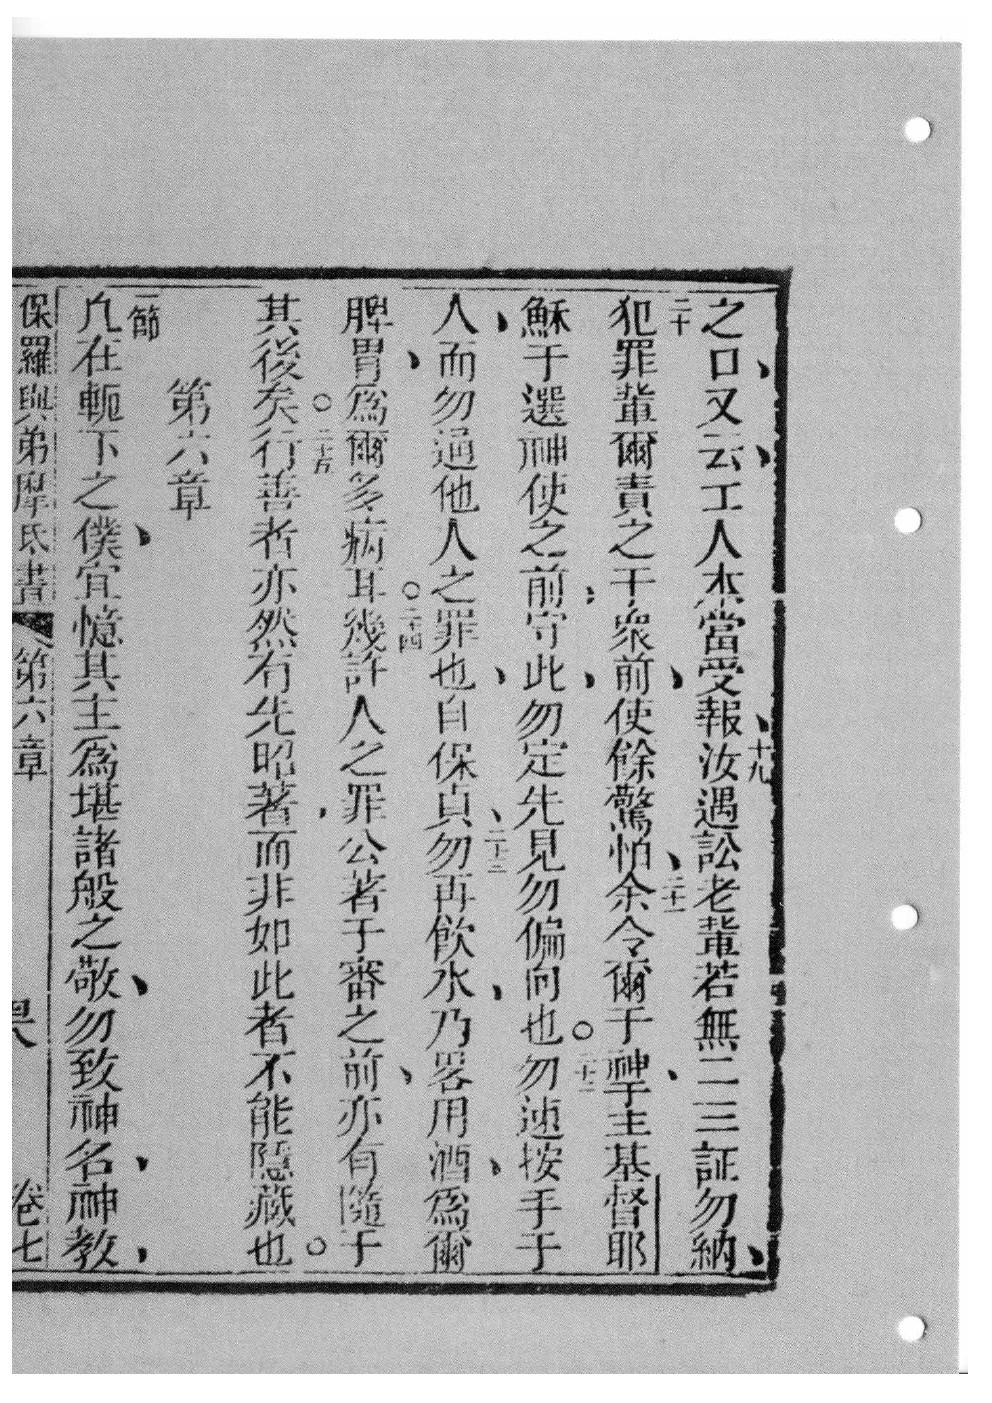 之口又云工人本當受報十九汝遇訟老輩若無二三証勿納
二十犯罪輩爾責之于衆前使餘驚怕二十一余令爾于神主基督耶
穌于選神使之前守此勿定先見勿偏向也○二十二勿速按手于
人而勿通他人之罪也自保貞二十三勿再飲水乃畧用酒爲爾
脾胃爲爾多病耳○二十四幾許人之罪公著于審之前亦有隨于
其後矣○二十五行善者亦然有先昭著而非如此者不能隱藏也○
第六章
一節凢在軛下之僕宜憶其主爲堪諸般之敬勿致神名神教
保羅與弟摩氐書 第六章 卷七